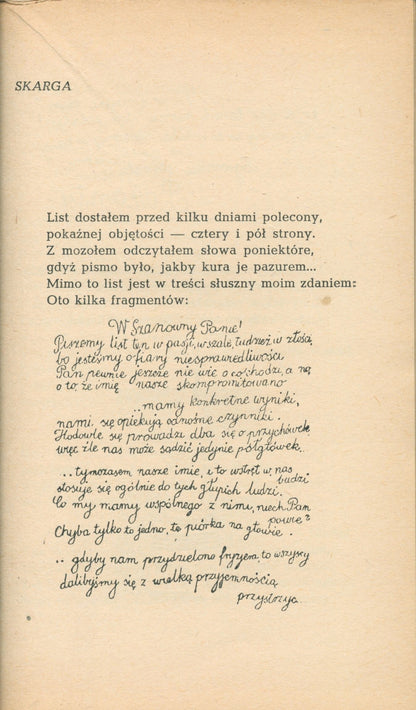 SKARGA
List dostałem przed kilku dniami polecony,
pokaźnej objętości — cztery i pół strony.
Z mozołem odczytałem słowa poniektóre,
gdyż pismo było, jakby kura je pazurem...
Mimo to list jest w treści słuszny moim zdaniem:
Oto kilka fragmentów:
W Szanowny Panie!
Piszemy list ten w pasji, w szale, tudzież w złości,
bo jesteśmy ofiary niesprawiedliwości
Pan pewnie jeszcze nie wie o co chodzi, a no
o to, że imię nasze skompromitowano
...mamy konkretne wyniki,
nami się opiekują odnośne czynniki.
Hodowle się prowadzi dba się o przychówek
więc źle nas może sądzić jedynie półgłówek..
...tymczasem nasze imię, i to wstręt w nas
budzi
stosuje się ogólnie do tych głupich ludzi.
Co my mamy wspólnego z nimi, niech Pan
powie?
Chyba tylko to jedno, że piórka na głowie.
.. gdyby nam przydzielono fryzjera, to wszyscy
dalibyśmy się z wielką przyjemnością
przystrzyc.